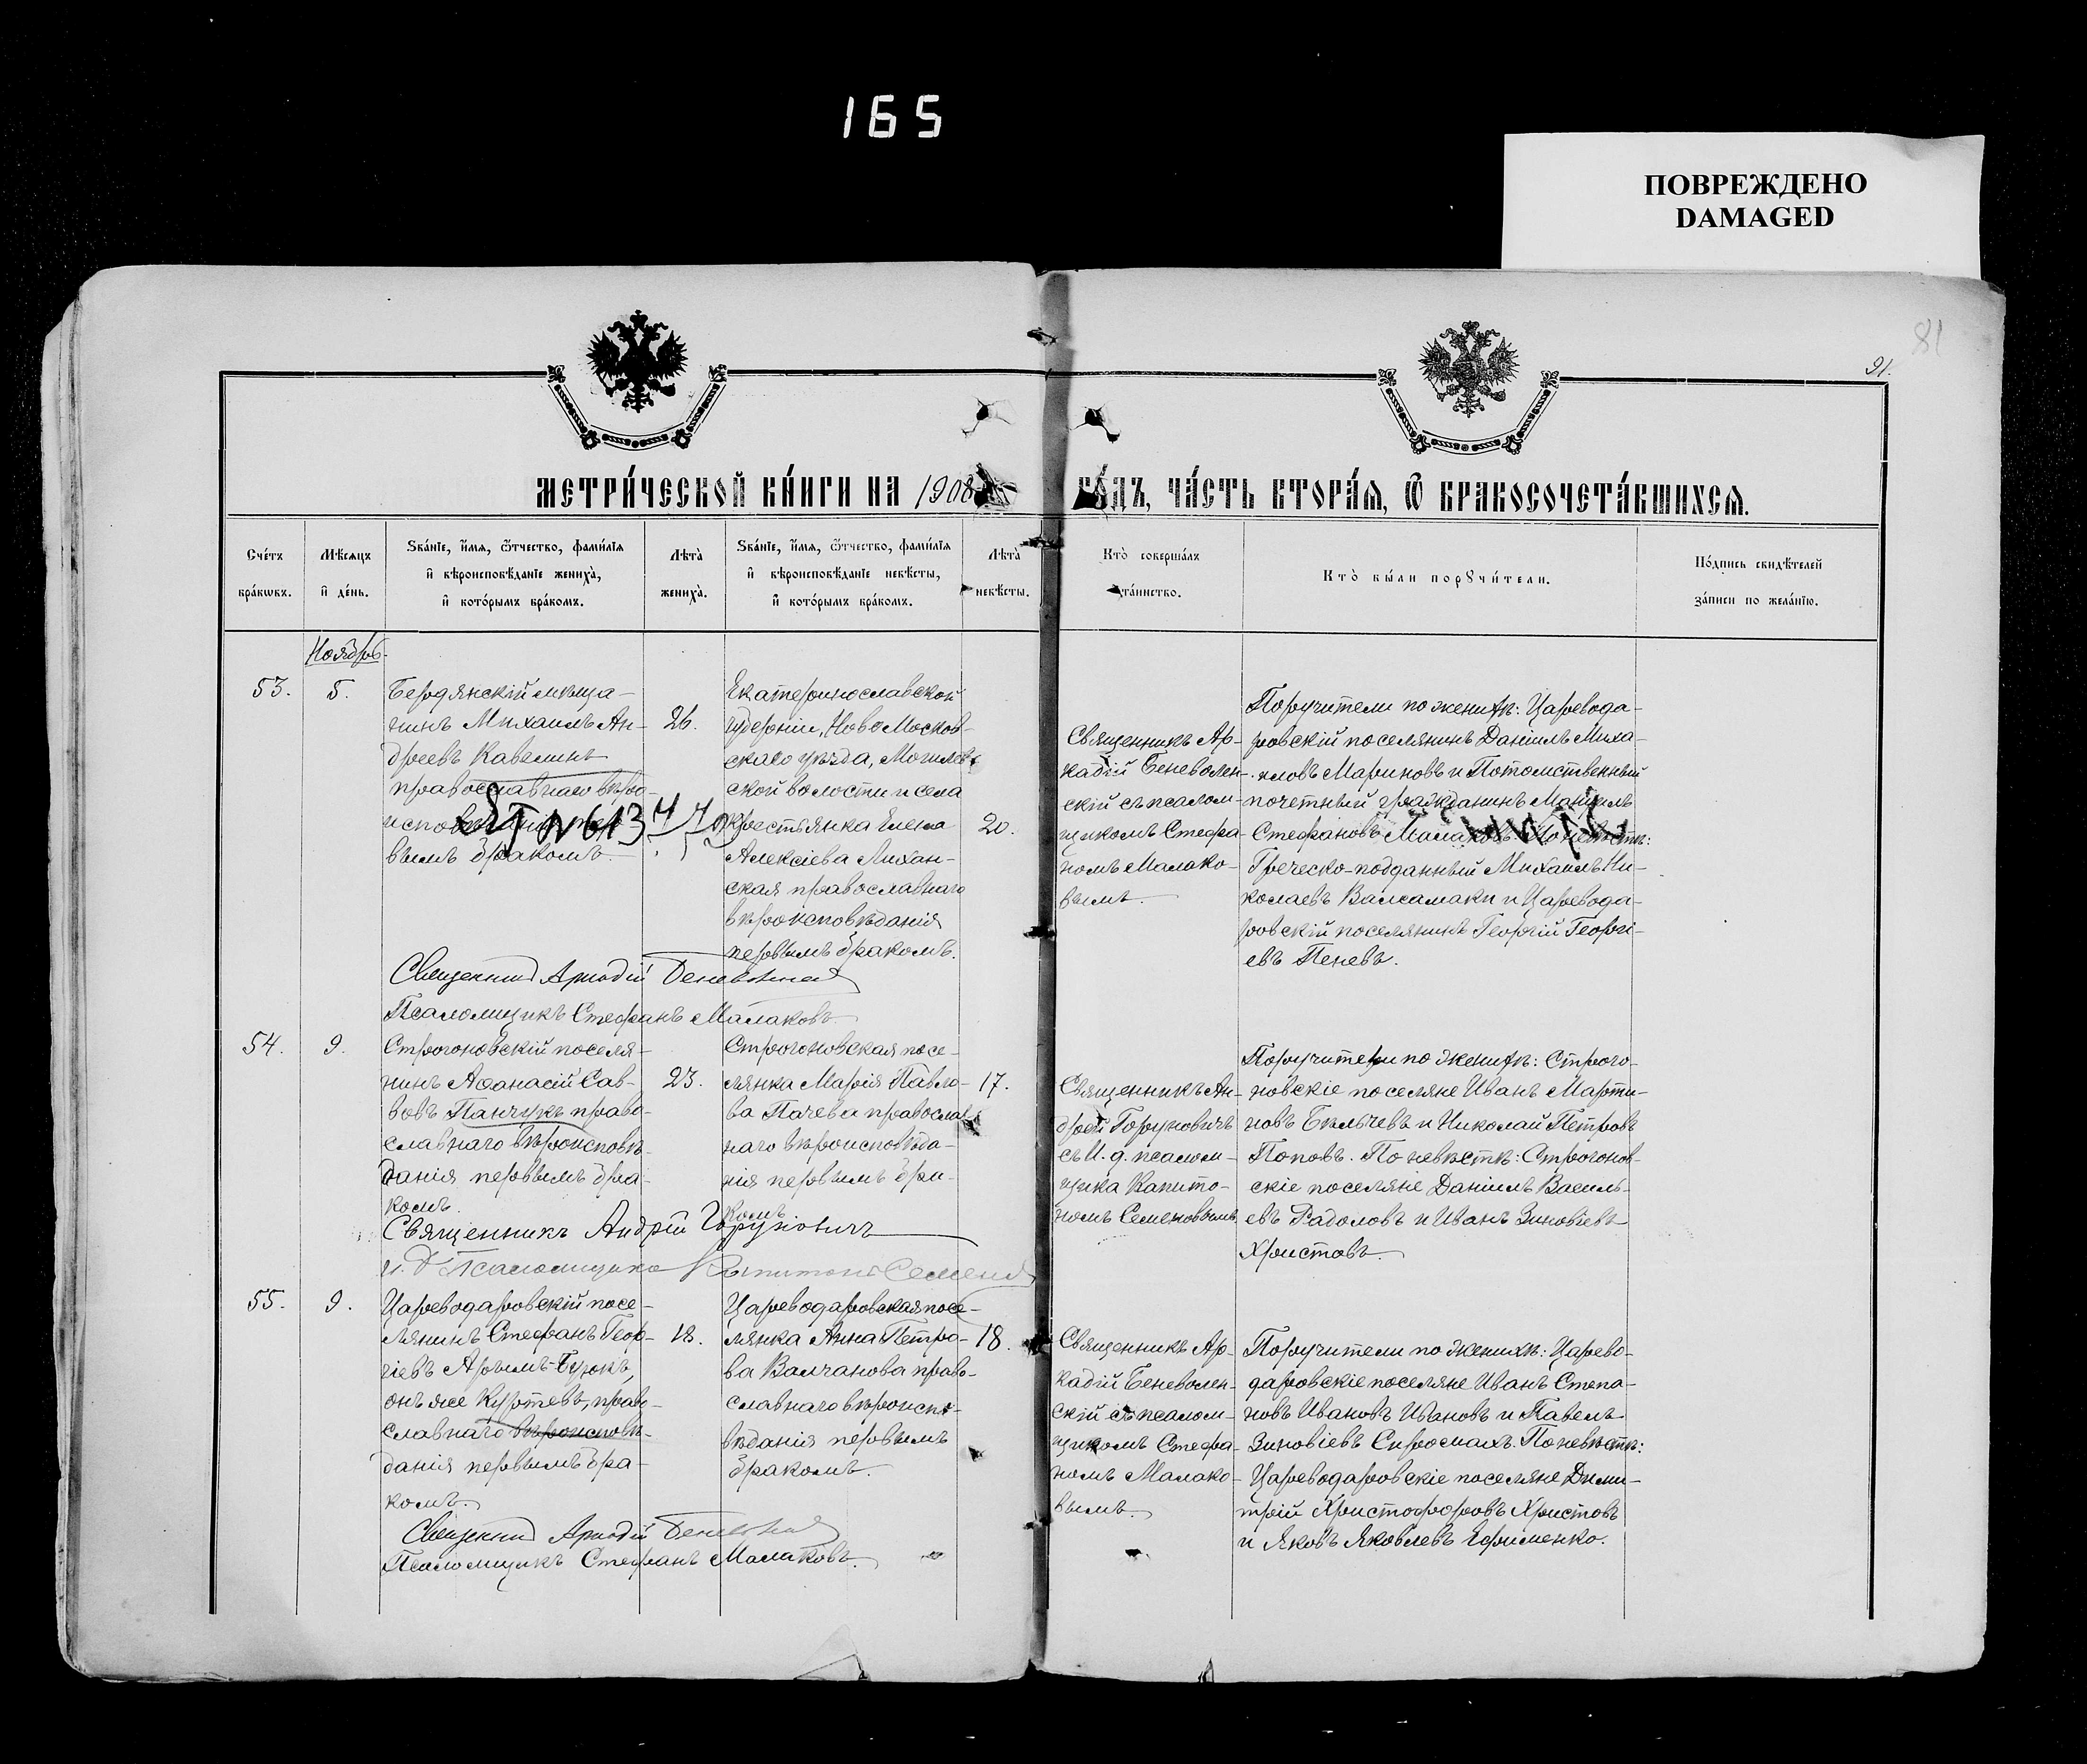 165
ПОВРЕЖДЕНО
DAMAGED
81
91.
МЕТРИ́ЧЕСКОЙ КНИ́ГИ НА 1908
ГО́ДЪ, ЧА́СТЬ ВТОРА́Я, Ѿ БРАКОСОЧЕТА́ВШИХСЯ.
Сче́тъ
бра́кѡвъ.
Мѣ́сяцъ
и҆ де́нь.
Зва́нїе, и҆́мя, ѻ҆́тчество, фами́лїя
и҆ вѣроисповѣ́данїе жениха̀,
и҆ кото́рымъ бра́комъ.
Лѣта̀
жениха̀.
Зва́нїе, и҆́мя, ѻ҆́тчество, фами́лїя
и҆ вѣроисповѣ́данїе невѣ́сты,
и҆ кото́рымъ бра́комъ.
Лѣта̀
невѣ́сты.
Кто̀ соверша́лъ
та́инство.
Кто̀ бы́ли порꙋчи́тели.
По́дпись свидѣ́телей
за́писи по жела́нїю.
Ноябрь.
53.
5.
Бердянскій мѣща-
нинъ Михаилъ Ан-
дреевъ Кавелинъ
православнаго вѣро-
вымъ бракомъ.
26.
Екатеринославской
губерніи, Ново Москов-
скаго уѣзда, Могилев-
ской волости и села
крестьянка Елена
Алексіева Лихан-
ская православнаго
вѣроисповѣданія
первымъ бракомъ.
20.
Священникъ Ар-
кадій Беневолен-
скій съ псалом-
щикомъ Стефа-
номъ Малако-
вымъ.
Поручители по женихѣ: Царевода-
ровскій поселянинъ Даніилъ Миха-
иловъ Мариновъ и Потомственный
почетный гражданинъ Мануилъ
Стефановъ Малаковъ. По невѣстѣ:
Греческо-подданный Михаилъ Ни-
колаевъ Валсамаки и Царевода-
ровскій поселянинъ Георгій Георгі-
евъ Пеневъ.
Священникъ Аркадій Беневоленскій
Псаломщикъ Стефанъ Малаковъ.
54.
9.
Строгоновскій поселя-
нинъ Аѳанасій Сав-
вовъ Панчукъ право-
славнаго вѣроисповѣ-
данія первымъ бра-
комъ.
23.
Строгоновская посе-
лянка Марія Павло-
ва Пачева правосла-
внаго вѣроисповѣда-
нія первымъ бра-
комъ.
17.
Священникъ Ан-
дрей Горуновичъ
съ И. д. псалом-
щика Капито-
номъ Семеновымъ.
Поручители по женихѣ: Строго-
новскіе поселяне Иванъ Марти-
новъ Бѣльчевъ и Николай Петровъ
Поповъ. По невѣстѣ: Строгонов-
скіе поселяне Даніилъ Василь-
евъ Радоловъ и Иванъ Зиновіевъ
Христовъ.
Священникъ Андрій Горуновичъ
и. д. Псаломщика Капитонъ Семеновъ
55.
9.
Цареводаровскій посе-
лянинъ Стефанъ Геор-
гіевъ Арымъ-Буюкъ,
онъ же Куртевъ, право-
славнаго вѣроисповѣ-
данія первымъ бра-
комъ.
18.
Цареводаровская посе-
лянка Анна Петро-
ва Валчанова право-
славнаго вѣроиспо-
вѣданія первымъ
бракомъ.
18.
Священникъ Ар-
кадій Беневолен-
скій съ псалом-
щикомъ Стефа-
номъ Малако-
вымъ.
Поручители по женихѣ: Царево-
даровскіе поселяне Иванъ Степа-
новъ Ивановъ Ивановъ и Павелъ
Зиновіевъ Сиросмахъ. По невѣстѣ:
Цареводаровскіе поселяне Дими-
трій Христофоровъ Христовъ
и Яковъ Яковлевъ Ефименко.
Священникъ Аркадій Беневоленскій
Псаломщикъ Стефанъ Малаковъ.